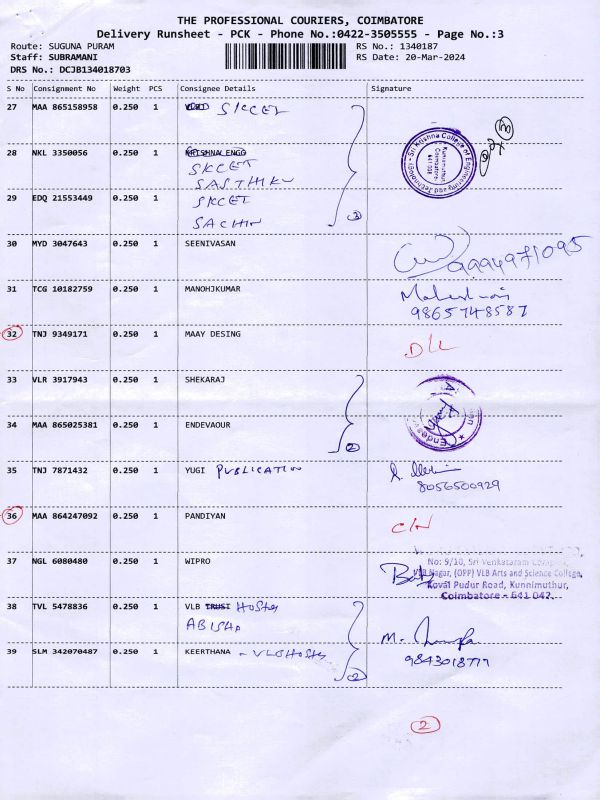 THE PROFESSIONAL COURIERS, COIMBATORE
Delivery Runsheet - PCK - Phone No.:0422-3505555 - Page No.:3
Route: SUGUNA PURAM
RS No.: 1340187
Staff: SUBRAMANI
RS Date: 20-Mar-2024
DRS No.: DCJB134018703
S No Consignment No Weight PCS Consignee Details Signature
27 MAA 865158958 0.250 1 SKCET
28 NKL 3350056 0.250 1 KRISHNA ENGG
SKCET
SASTHIKV
29 EDQ 21553449 0.250 1 SKCET
SACHIN
3
Sri Krishna College of Engineering and Technology
Kuniamuthur, Coimbatore- 641 008
30 MYD 3047643 0.250 1 SEENIVASAN 9994971095
31 TCG 10182759 0.250 1 MANOHJKUMAR
9865748587
32 TNJ 9349171 0.250 1 MAAY DESING D/L
33 VLR 3917943 0.250 1 SHEKARAJ
34 MAA 865025381 0.250 1 ENDEVAOUR
2
35 TNJ 7871432 0.250 1 YUGI PUBLICATION
8056500929
36 MAA 864247092 0.250 1 PANDIYAN
37 NGL 6080480 0.250 1 WIPRO
No: 9/10, Sri Venkataram
VLB Nagar, (OPP) VLB Arts and Science College,
Kovai Pudur Road, Kunnimuthur,
Coimbatore - 641 042.
38 TVL 5478836 0.250 1 VLB TRUST Hostel
ABISHA
39 SLM 342070487 0.250 1 KEERTHANA - VLB Hostel
2
2